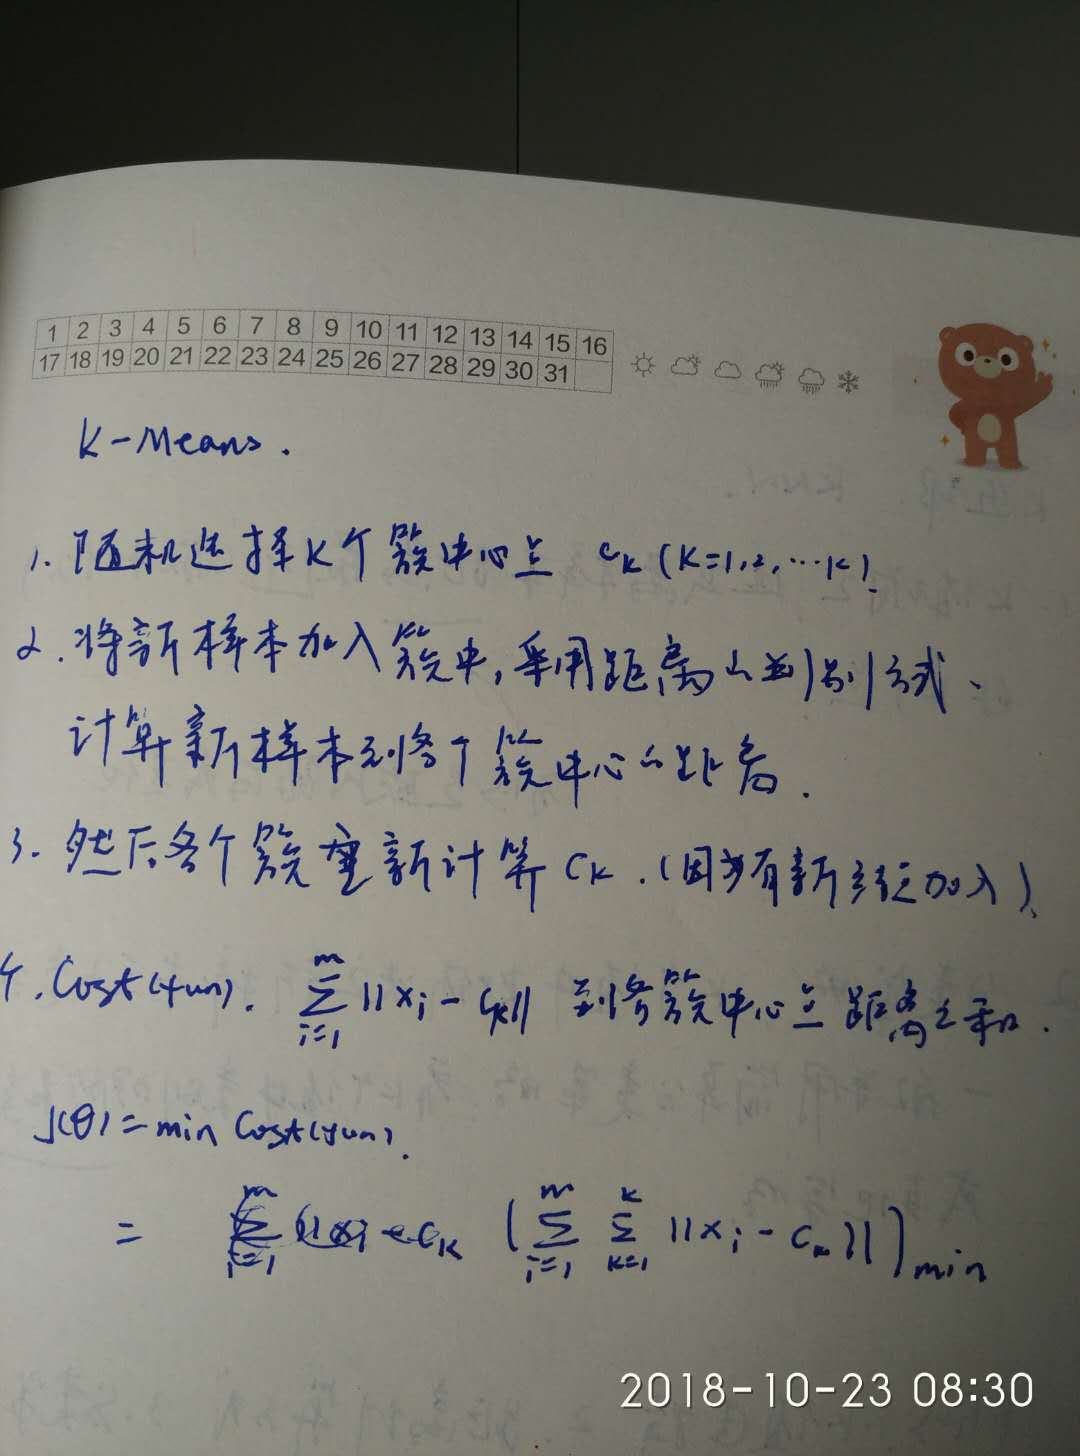 1 2 3 4 5 6 7 8 9 10 11 12 13 14 15 16
17 18 19 20 21 22 23 24 25 26 27 28 29 30 31
K-Means.
1. 随机选择K个簇中心点 CK (K=1,2,...K).
2. 将新样本加入簇中,采用距离的判别方式、
计算新样本到各个簇中心的距离.
3. 然后各个簇重新计算CK.(因为有新样本加入).
4. Cost(fun). m∑i=1 ||xi - CK|| 到各簇中心点距离之和.
J(θ) = min Cost(fun).
= (m∑i=1 K∑K=1 ||xi - CK||)min
2018-10-23 08:30